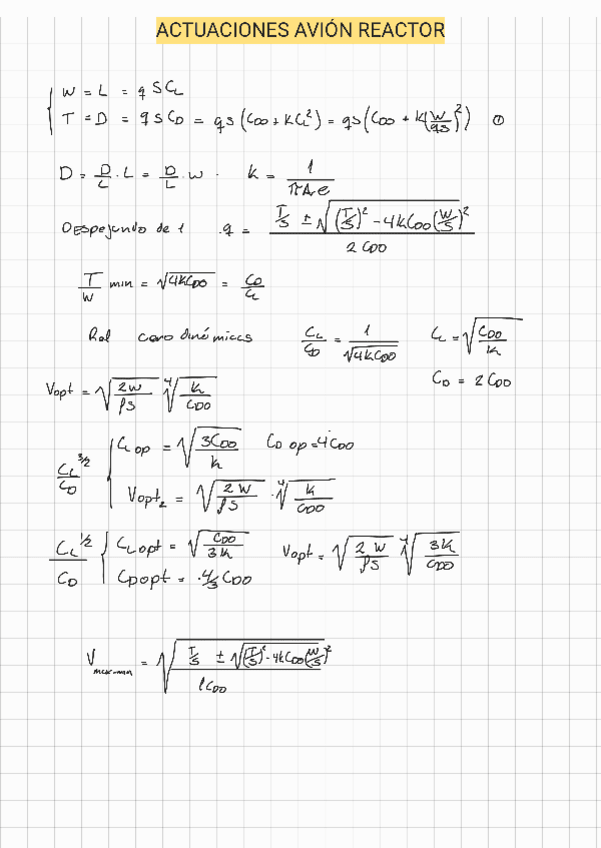 ACTUACIONES AVIÓN REACTOR
W = L = q S CL
T = D = q S CD = qs (CD0 + k CL²) = qs (CD0 + k (W/qs)²) ①
D = D/L · L = D/L · W · k = 1/(πAe)
Despejando de 1 · q = (T/S ± √((T/S)² - 4kCD0(W/S)²)) / 2CD0
T/W min = √(4kCD0) = CD/CL
Rel aerodinámicas CL/CD = 1/√(4kCD0) CL = √(CD0/k)
CD = 2CD0
Vopt = √(2W/ρS) ∜(k/CD0)
CL^3/2/CD { CL op = √(3CD0/k) CD op = 4CD0
Vopt2 = √(2W/ρS) · ∜(k/CD0)
CL^1/2/CD { CL opt = √(CD0/3k) Vopt = √(2W/ρS) ∜(3k/CD0)
CD opt = 4/3 CD0
V max-min = √((T/S ± √((T/S)² - 4kCD0(W/S)²)) / ρCD0)